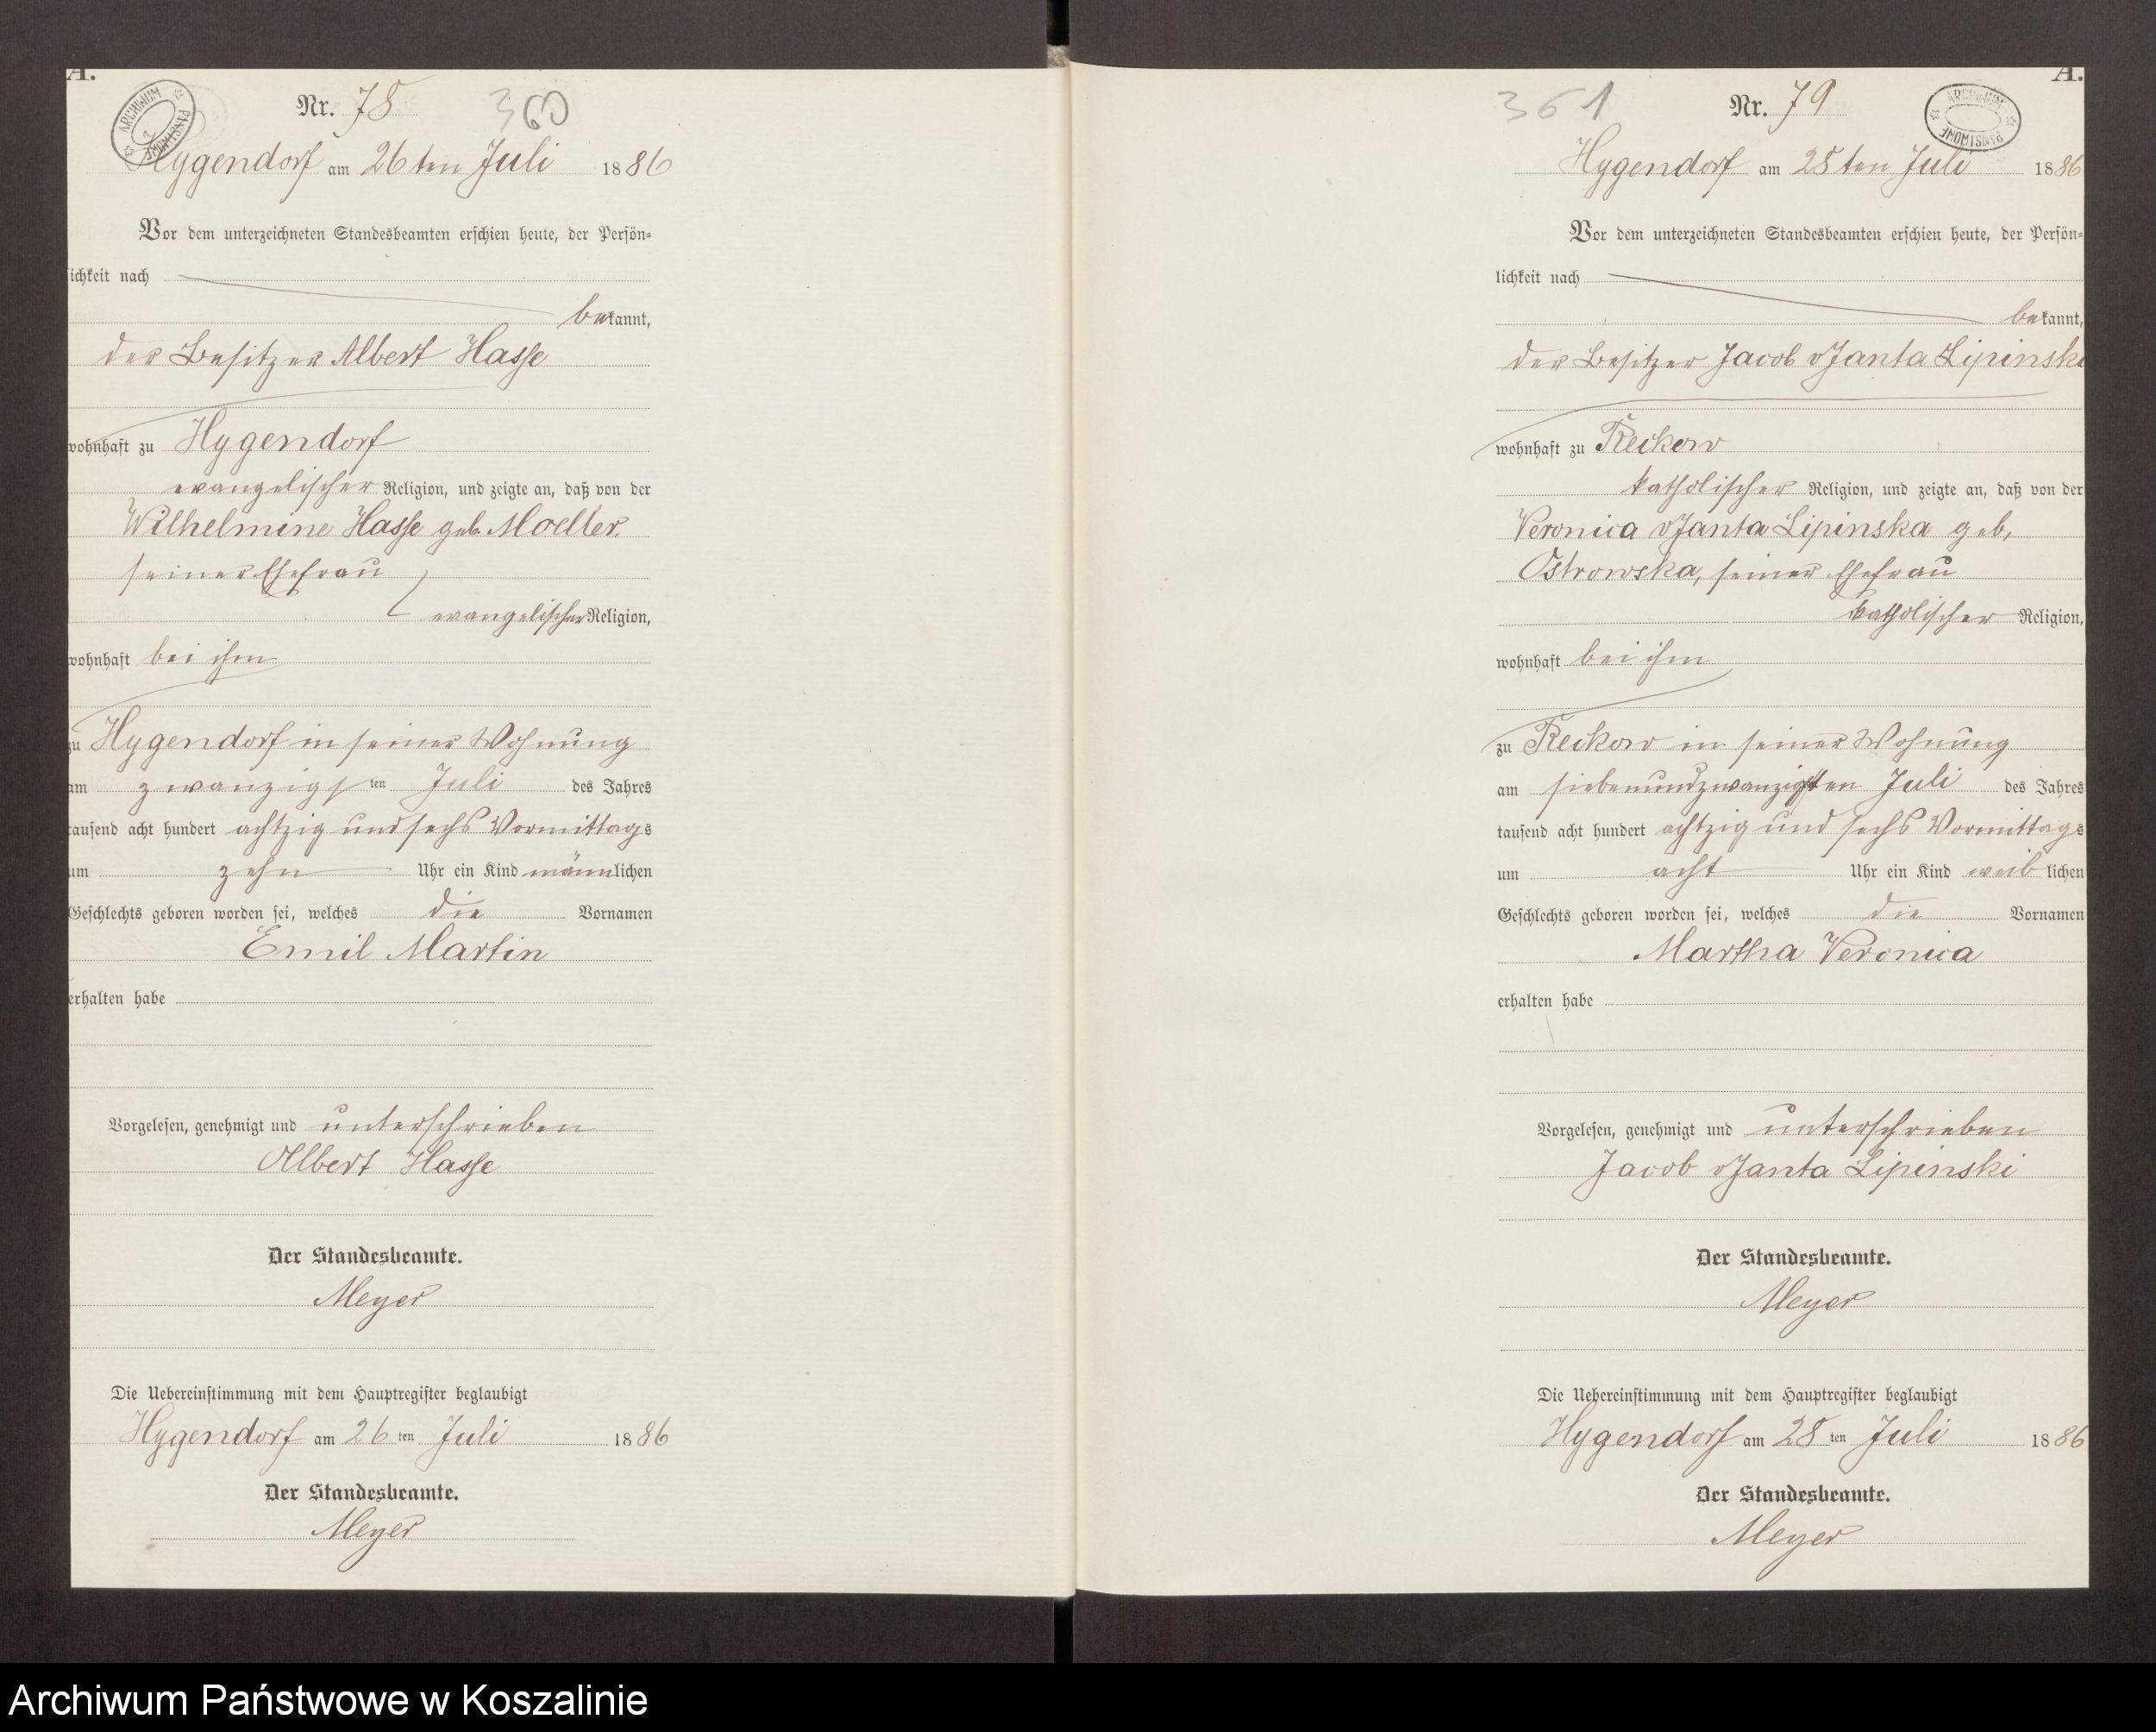 A.
ARCHIWUM PAŃSTWOWE
Nr. 78 360
Hygendorf am 26ten Juli 1886
Vor dem unterzeichneten Standesbeamten erschien heute, der Persön-
lichkeit nach
bekannt,
der Besitzer Albert Hasse
wohnhaft zu Hygendorf
evangelischer Religion, und zeigte an, daß von der
Wilhelmine Hasse geb. Moeller,
seiner Ehefrau
evangelischer Religion,
wohnhaft bei ihm
zu Hygendorf in seiner Wohnung
am zwanzigsten Juli des Jahres
tausend acht hundert achtzig und sechs Vormittags
um zehn Uhr ein Kind männlichen
Geschlechts geboren worden sei, welches die Vornamen
Emil Martin
erhalten habe
Vorgelesen, genehmigt und unterschrieben
Albert Hasse
Der Standesbeamte.
Meyer
Die Uebereinstimmung mit dem Hauptregister beglaubigt
Hygendorf am 26ten Juli 1886
Der Standesbeamte.
Meyer
A.
361 Nr. 79
ARCHIWUM PAŃSTWOWE
Hygendorf am 28ten Juli 1886
Vor dem unterzeichneten Standesbeamten erschien heute, der Persön-
lichkeit nach
bekannt,
der Besitzer Jacob v Janta Lipinski
wohnhaft zu Reckow
katholischer Religion, und zeigte an, daß von der
Veronica v Janta Lipinska geb,
Ostrowska, seiner Ehefrau
katholischer Religion,
wohnhaft bei ihm
zu Reckow in seiner Wohnung
am siebenundzwanzigsten Juli des Jahres
tausend acht hundert achtzig und sechs Vormittags
um acht Uhr ein Kind weiblichen
Geschlechts geboren worden sei, welches die Vornamen
Martha Veronica
erhalten habe
Vorgelesen, genehmigt und unterschrieben
Jacob v Janta Lipinski
Der Standesbeamte.
Meyer
Die Uebereinstimmung mit dem Hauptregister beglaubigt
Hygendorf am 28ten Juli 1886
Der Standesbeamte.
Meyer
Archiwum Państwowe w Koszalinie